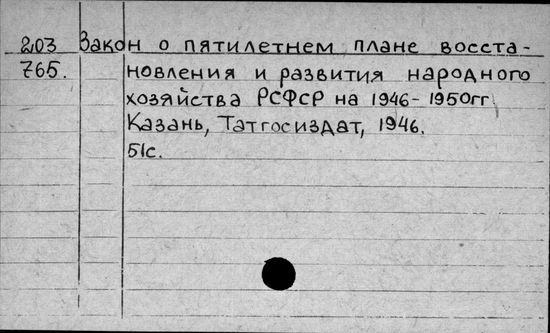 203 Закон о пятилетнем плане восста-
765. новления и развития народного
хозяйства РСФСР на 1946-1950гг
Казань, Татгосиздат, 1946.
51с.